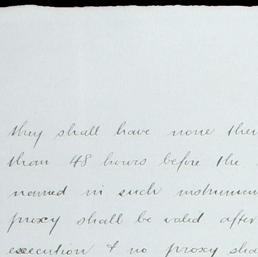 they shall have none
than 48 hours before the
named in such
proxy shall be valid after
execution & no proxy